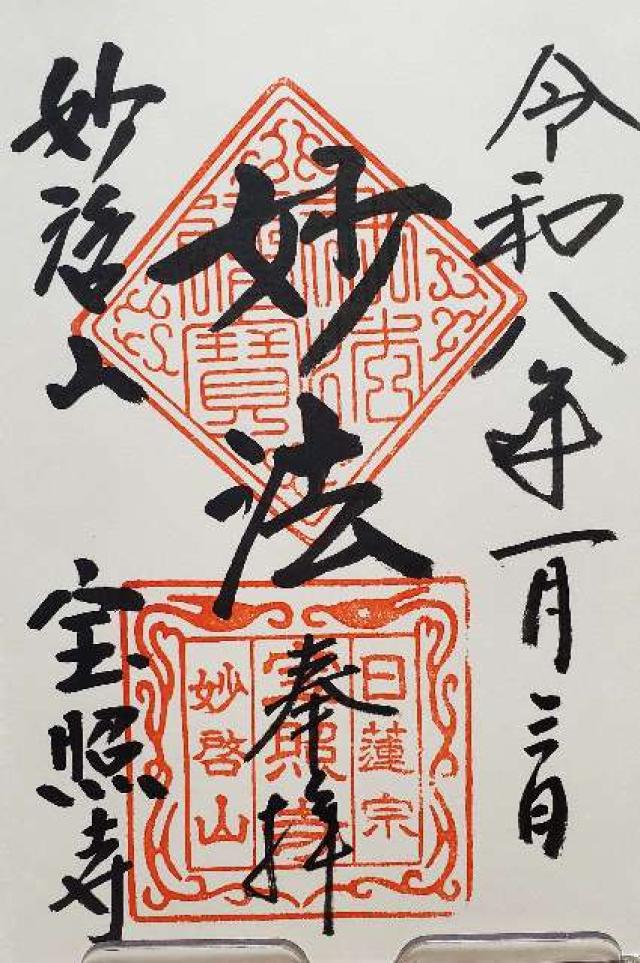 令和八年一月三日
妙法
奉拝
妙啓山
宝照寺
日蓮宗
宝照寺
妙啓山